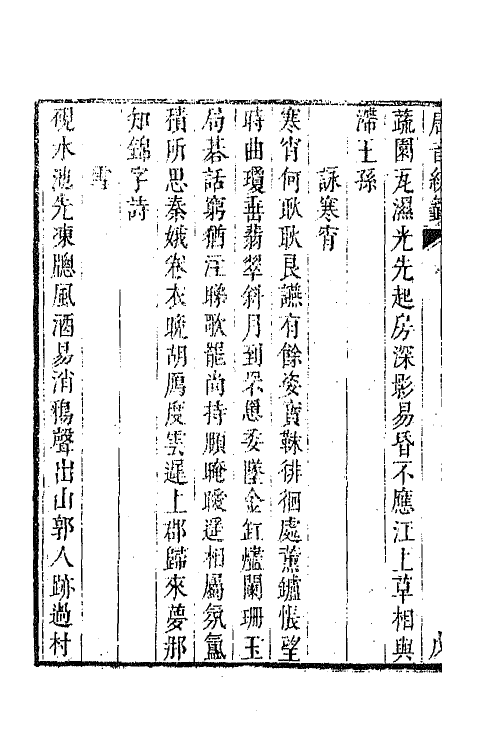 唐音統籤
蔬園瓦濕光先起房深影易昏不應江上草相與
滯王孫
詠寒宵
寒宵何耿耿良讌有餘姿寶韈徘徊處薰鑪悵望
時曲瓊垂翡翠斜月到罘罳委墜金釭燼闌珊玉
局碁話窮猶注睇歌罷尚持頤晻曖遥相屬氛氳
積所思秦娥卷衣晚胡鴈度雲遲上郡歸來夢那
知錦字詩
雪
硯水池先凍牕風酒易消鴉聲出山郭人跡過村